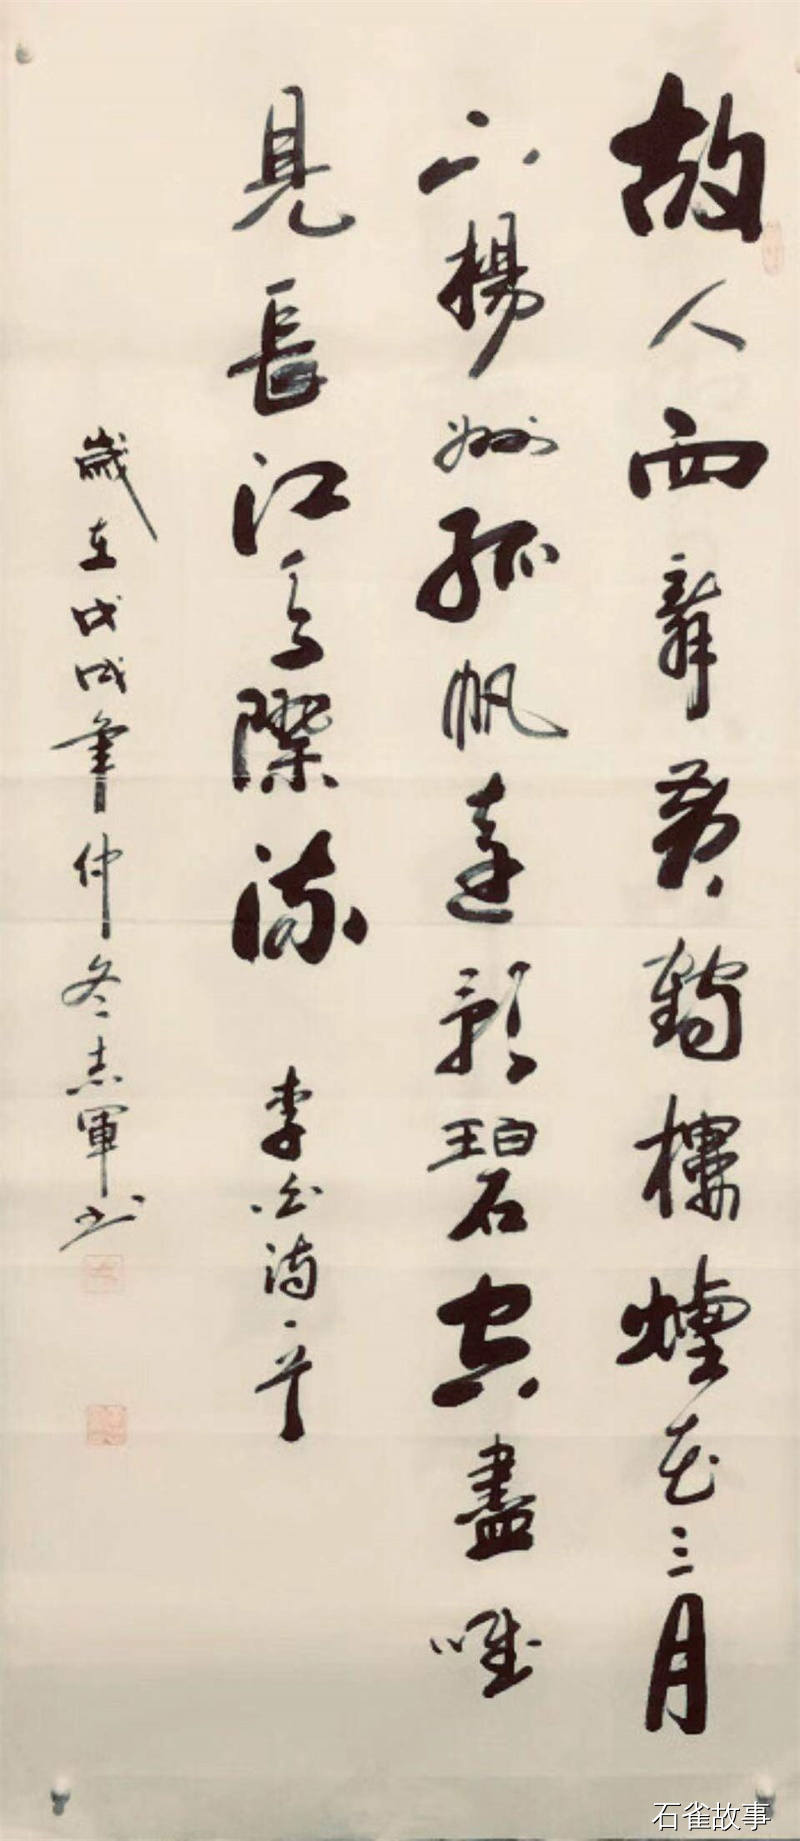 故人西辭黄鶴樓煙花三月
下楊州孤帆遠影碧空盡唯
見長江天際流 李白詩一首
歲在戊戌年仲冬志軍书
石雀故事